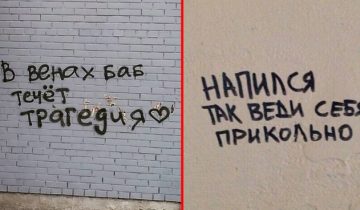 В венах баб
течёт
трагедия♡
НАПИЛСЯ
ТАК ВЕДИ СЕБЯ
ПРИКОЛЬНО